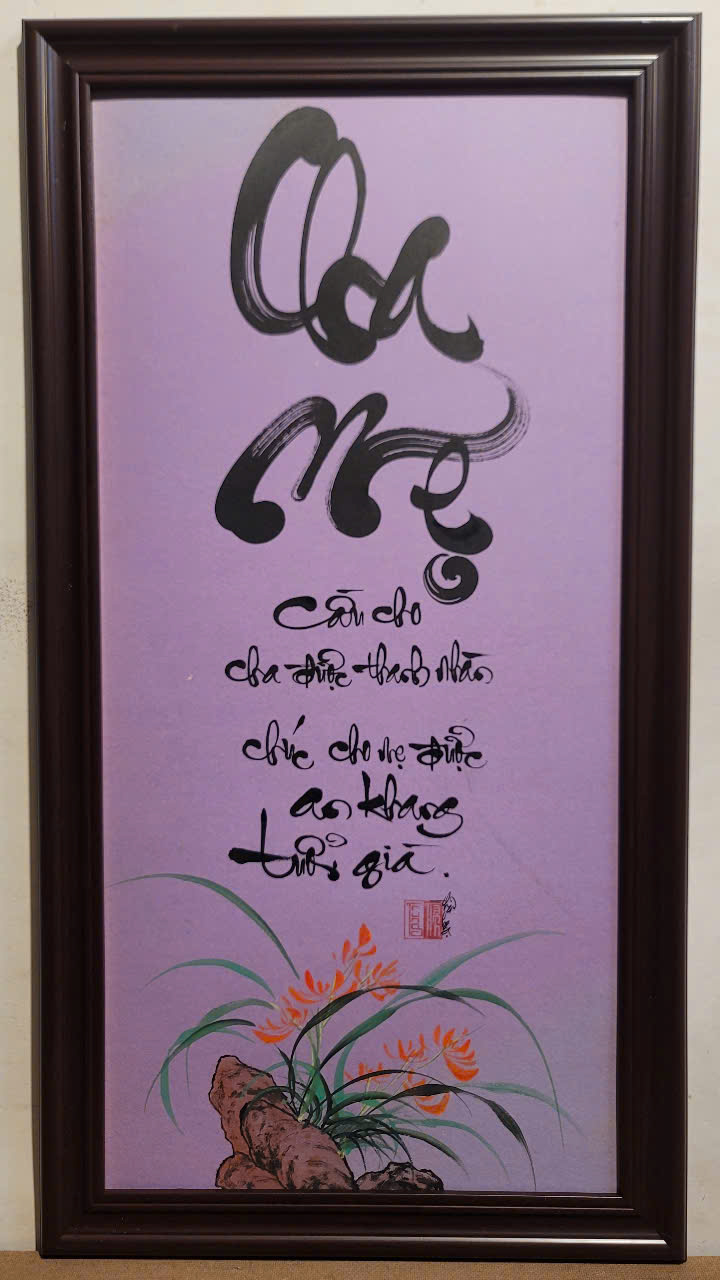 Cha
Mẹ
Cầu cho
cha được thanh nhàn
chúc cho mẹ được
an khang
tuổi già.